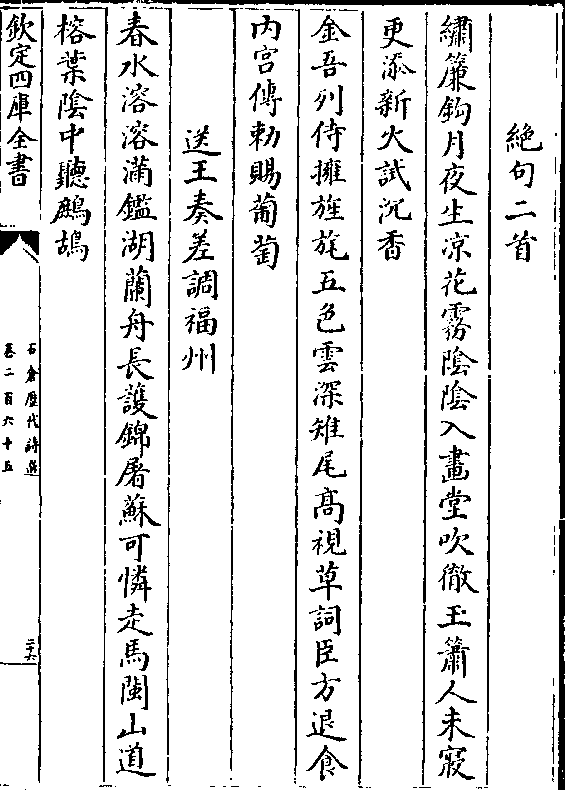 絶句二首
繡簾鈎月夜生凉花霧隂隂入畫堂吹徹玉簫人未寢
更添新火試沉香
金吾列侍擁旌旄五色雲深雉尾髙視草詞臣方退食
内宫傳勅賜葡萄
送王奏差調福州
春水溶溶滿鑑湖蘭舟長護錦屠蘇可憐走馬閩山道
榕葉隂中聽鷓鴣
欽定四庫全書
石倉歴代詩選
卷二百六十五
二十六